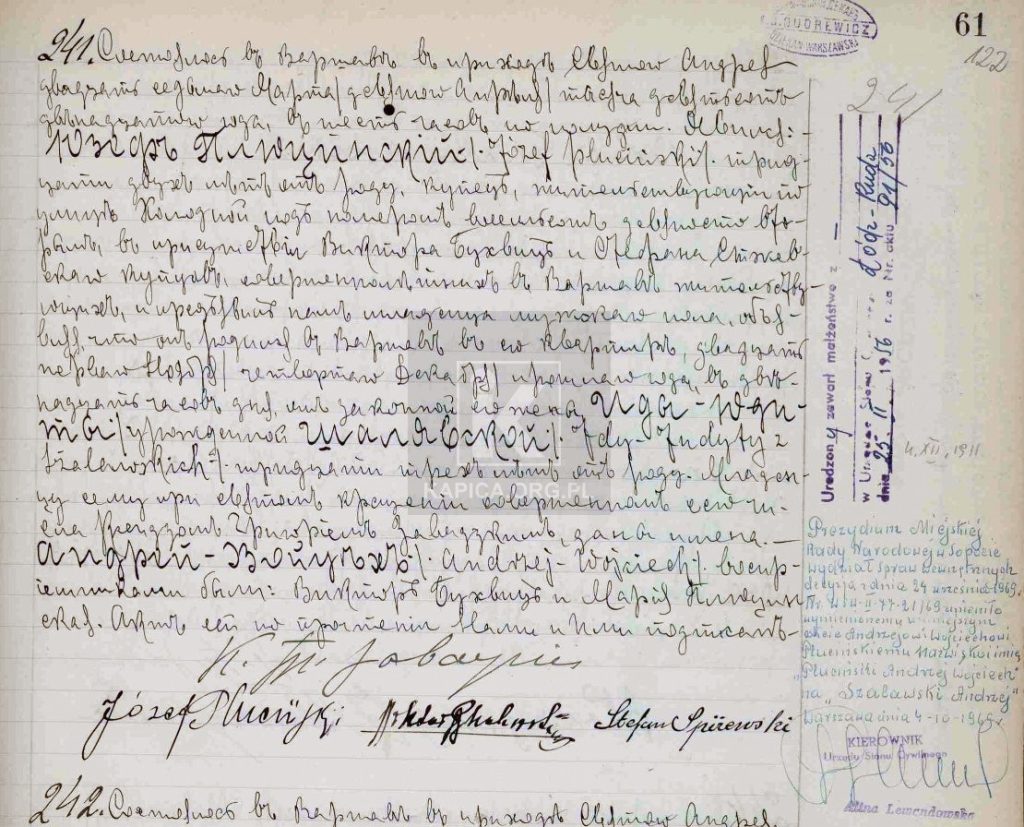 61
122
241
241. Состоялось въ Варшавѣ въ приходѣ Святого Андрея
двадцать седьмого Марта/ девятого Апрѣля/ тысяча девятьсотъ
двѣнадцатого года, въ шесть часовъ по полудни. Явился:
Юзефъ Плюцинскій /. Józef Pluciński/. трид-
цати двухъ лѣтъ отъ роду, купецъ, жительствующій по
улицѣ Холодной подъ номеромъ девяносто вто-
рымъ, въ присутствіи Виктора Бухвицъ и Стефана
скаго купцевъ, совершеннолѣтнихъ въ Варшавѣ жительству-
ющихъ, и предъявилъ намъ младенца мужскаго пола, объя-
вивъ что онъ родился въ Варшавѣ въ его квартирѣ, двадцать
перваго Ноября/ четвертаго Декабря/ прошлаго года, въ двѣ-
надцать часовъ дня, отъ законной его жены, Иды-Юди-
ты /урожденной Шалявской/. Idy-Judyty z
Szalawskich /. тридцати трехъ лѣтъ отъ роду. Младен-
цу сему при святомъ крещеніи совершенномъ сего чи-
сла Ксендзомъ Григоріемъ Завадзкимъ, даны имена. —
Андрей-Войцѣхъ/. Andrzej-Wojciech/. воспр-
іемниками были: Викторъ Бухвицъ и Марія Плюцин-
ская. Актъ сей по прочтеніи Нами и Ими подписанъ-
Józef Pluciński Stefan Spirewski
242. Состоялось въ Варшавѣ въ приходѣ Святого Андрея.
Urodzony zawarł małżeństwo z —
w Urzędzie Stanu C Łódź-Ruda
dnia 25 II 1956 r. za Nr. aktu 91/56
4.XII.1911
Prezydium Miejskiej
Rady Narodowej w Sopocie
Wydział Spraw Wewnętrznych
decyzją z dnia 24 września 1969r.
Nr. zmieniło
wymienionemu w niniejszym
akcie Andrzejowi Wojciechowi
Plucińskiemu nazwisko i imię
"Pluciński Andrzej Wojciech"
na "Szalawski Andrzej"
Warszawa dnia 4-10-1969r
KIEROWNIK
Urzędu Stanu Cywilnego
Alina Lewandowska
KAPICA.ORG.PL